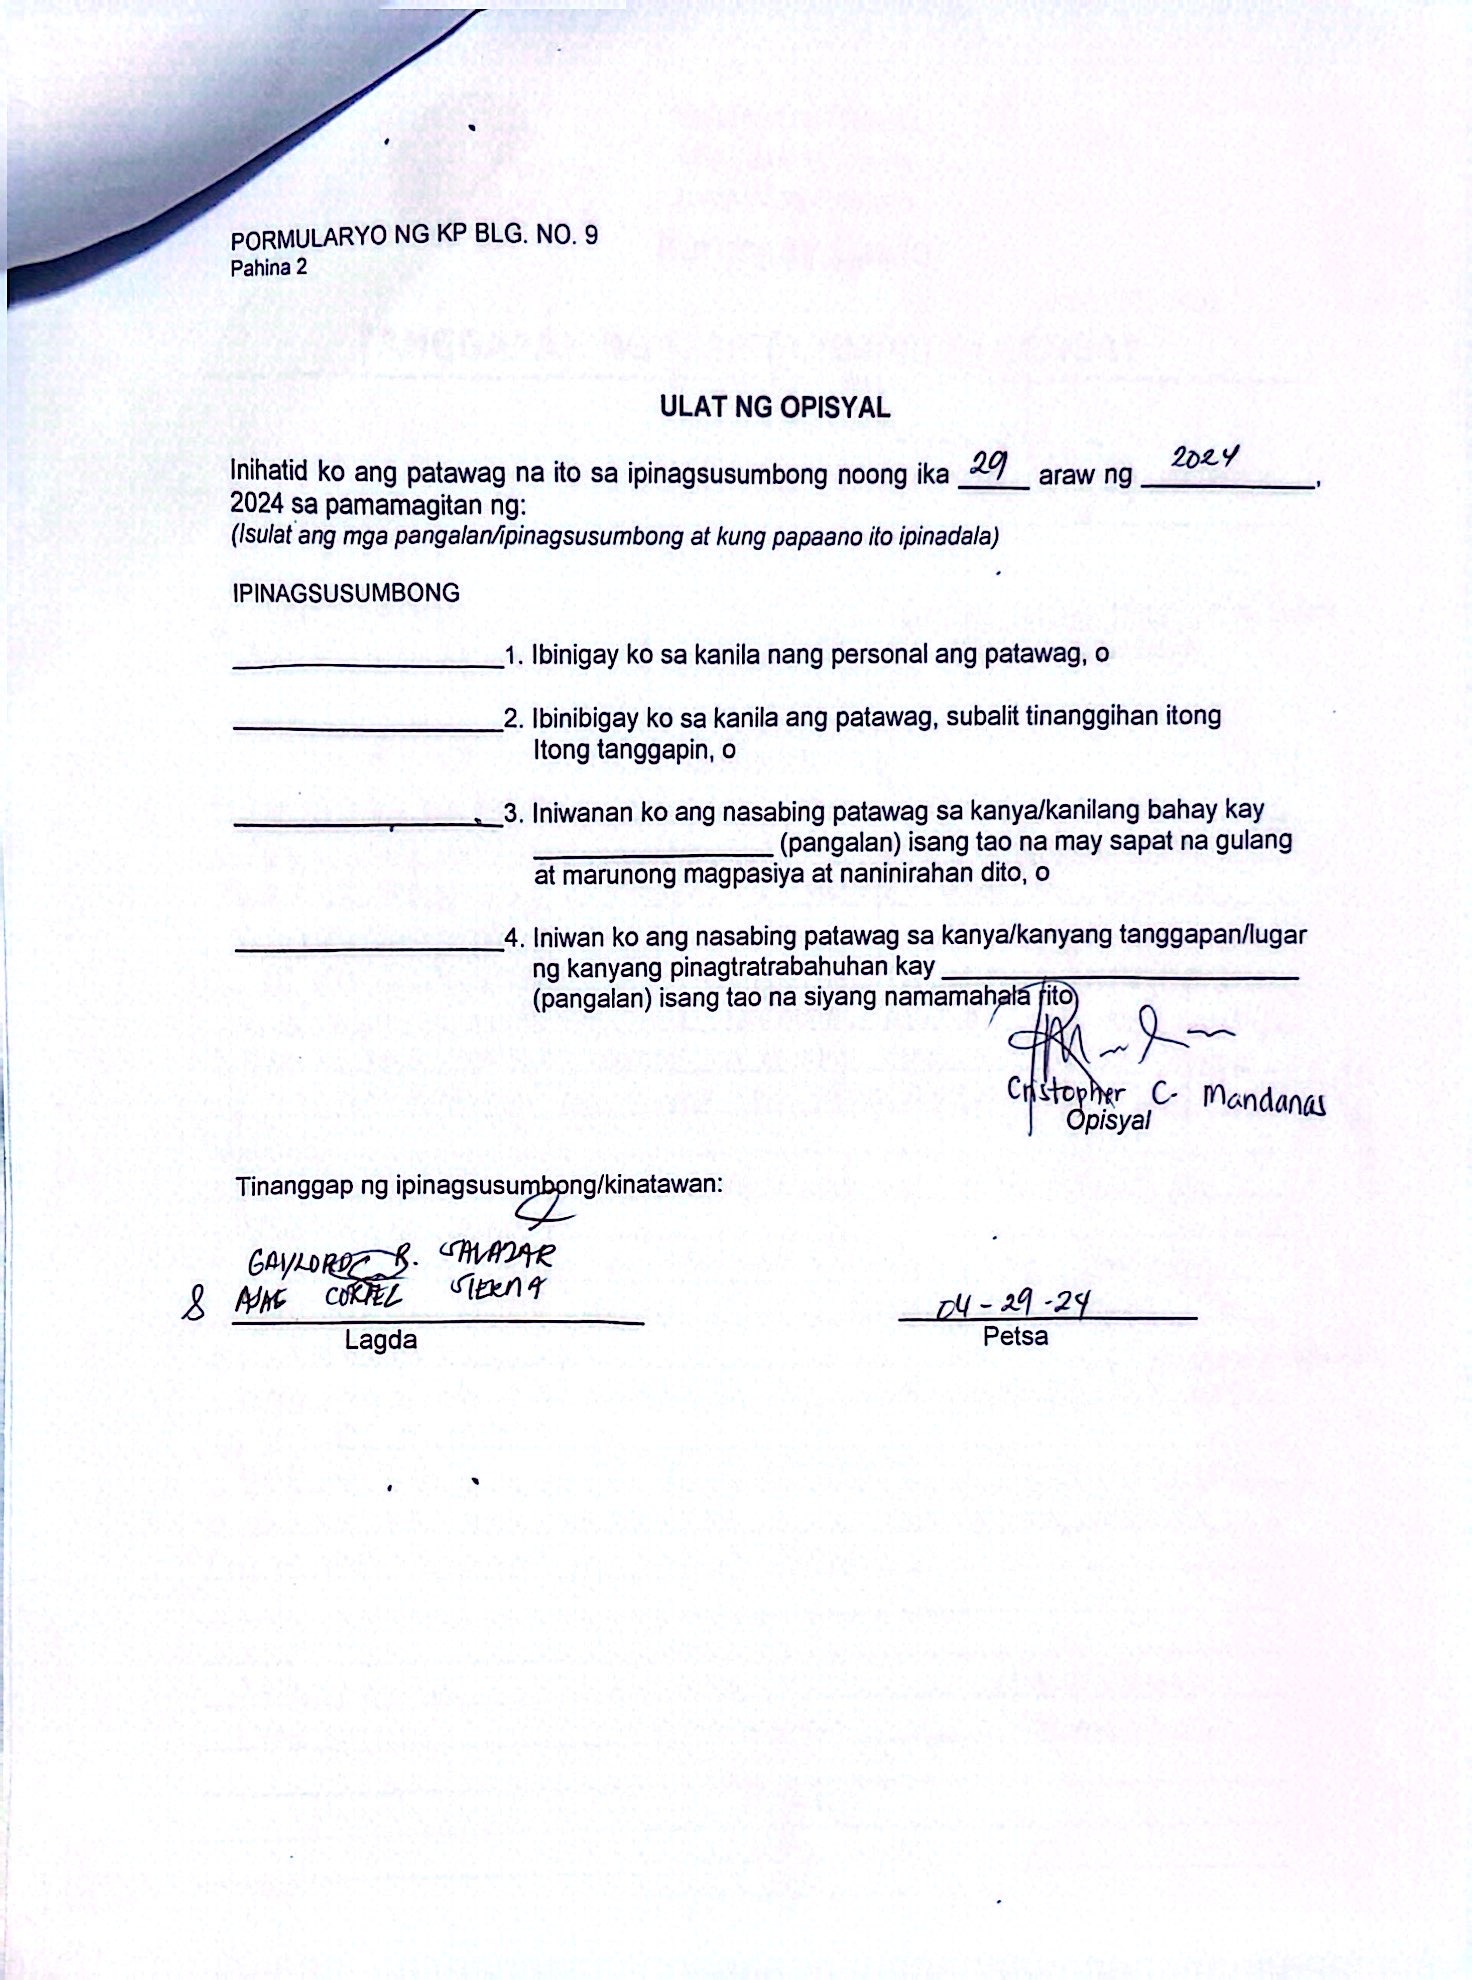 PORMULARYO NG KP BLG. NO. 9
Pahina 2
ULAT NG OPISYAL
Inihatid ko ang patawag na ito sa ipinagsusumbong noong ika 29 araw ng 2024,
2024 sa pamamagitan ng:
(Isulat ang mga pangalan/ipinagsusumbong at kung papaano ito ipinadala)
IPINAGSUSUMBONG
1. Ibinigay ko sa kanila nang personal ang patawag, o
2. Ibinibigay ko sa kanila ang patawag, subalit tinanggihan itong
Itong tanggapin, o
3. Iniwanan ko ang nasabing patawag sa kanya/kanilang bahay kay
(pangalan) isang tao na may sapat na gulang
at marunong magpasiya at naninirahan dito, o
4. Iniwan ko ang nasabing patawag sa kanya/kanyang tanggapan/lugar
ng kanyang pinagtratrabahuhan kay
(pangalan) isang tao na siyang namamahala rito
Cristopher C. Mandanas
Opisyal
Tinanggap ng ipinagsusumbong/kinatawan:
GAYLORD B. SALAZAR
04-29-24
Lagda
Petsa